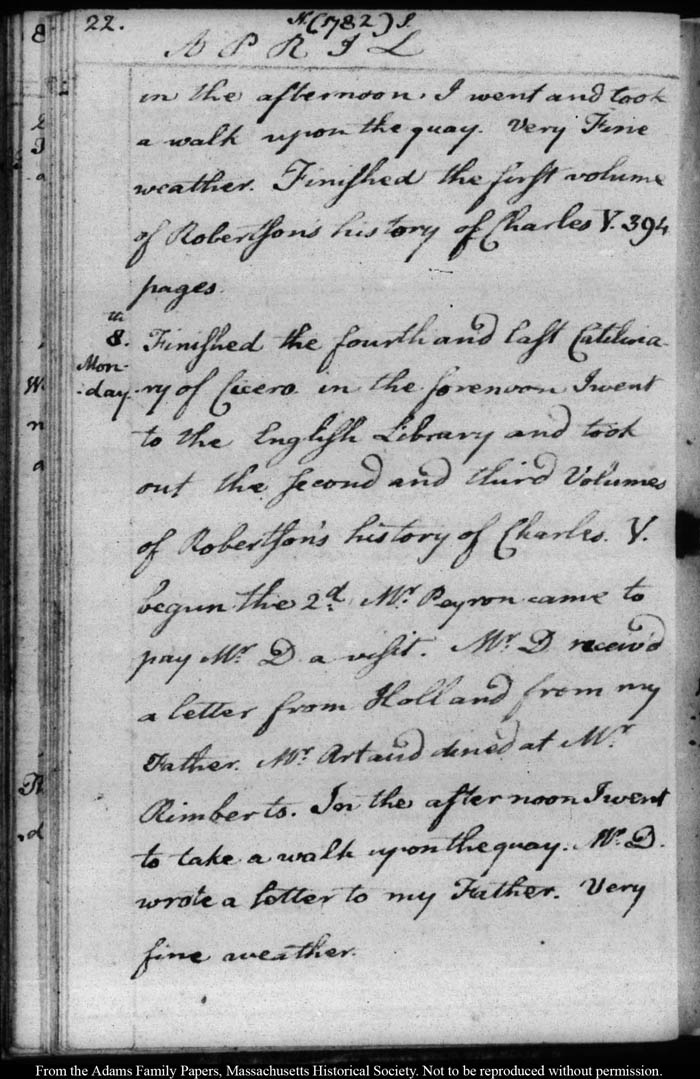 22.
N.(1782)S.
A P R I L
in the afternoon. I went and took
a walk upon the quay. Very Fine
weather. Finished the first volume
of Robertson's history of Charles V. 394
pages.
8.th
Mon-
-day.
Finished the fourth and last Catilina-
-ry of Cicero. in the forenoon I went
to the English Library and took
out the second and third Volumes
of Robertson's history of Charles. V.
begun the 2d. Mr. Peyron came to
pay Mr. D a visit. Mr. D receiv'd
a letter from Holland from my
Father. Mr. Artaud dined at Mr.
Rimberts. In the afternoon I went
to take a walk upon the quay. Mr. D.
wrote a letter to my Father. Very
fine weather.
From the Adams Family Papers, Massachusetts Historical Society. Not to be reproduced without permission.